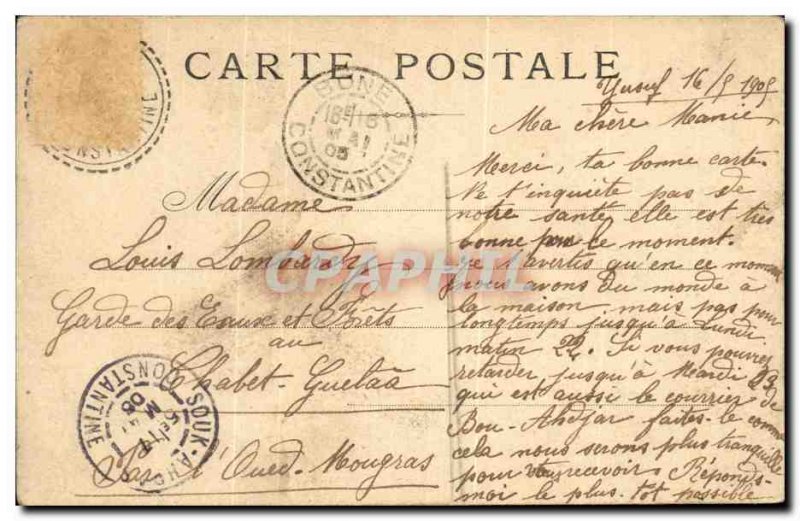 CARTE POSTALE
BONE
16 MAI 05
CONSTANTINE
CONSTANTINE
16/5 1905
Ma chère Manie
Merci, ta bonne carte.
Ne t'inquiète pas de
notre santé elle est très
bonne pour ce moment.
Je t'avertis qu'en ce moment
nous avons du monde à
la maison, mais pas pour
longtemps jusqu'à Lundi
matin 22. Si vous pouvez
retarder jusqu'à Mardi 23
qui est aussi le courrier de
Bou-Ahdjar faites-le comme
cela nous serons plus tranquille
pour vous recevoir Réponds-
moi le plus-tôt possible
Madame
Louis Lombardy
Garde des Eaux et Forêts
au
Chabet-Guelaâ
Par l'Oued-Mougras
SOUK-AHRAS
CONSTANTINE
CPAPHIL